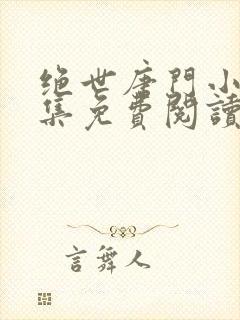 绝世唐門小
集免費閱讀
言舞人